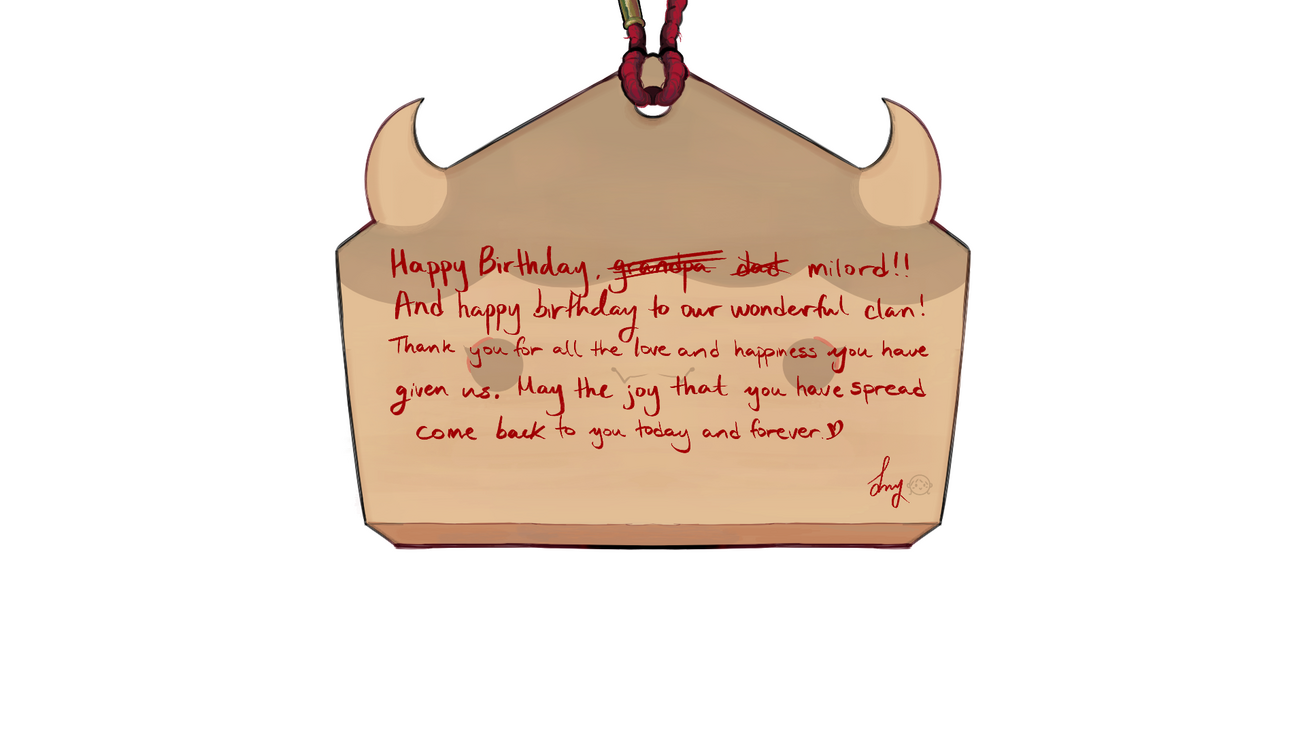 Happy Birthday, grandpa dad milord!!
And happy birthday to our wonderful clan!
Thank you for all the love and happiness you have
given us. May the joy that you have spread
come back to you today and forever.♡